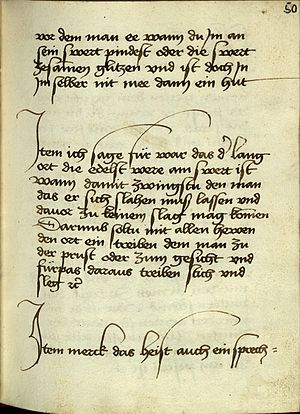 50
vor dem man ee wann du Im an
sein swert pindest oder die swert
zesamen glitzen und ist doch In
Im selber nit mee dann ein hut
Item ich sage für war das d' lang
ort die edelst were am swert ist
wann damit zwingstu den man
das er sich slahen mus lassen und
davor zu keinen slag mag komen
Darumb soltu mit allen hewen
den ort ein treiben dem man zu
der prust oder zum gesicht und
fürpas daraus treiben stich und
sleg
Item merck das heist auch ein sprech=